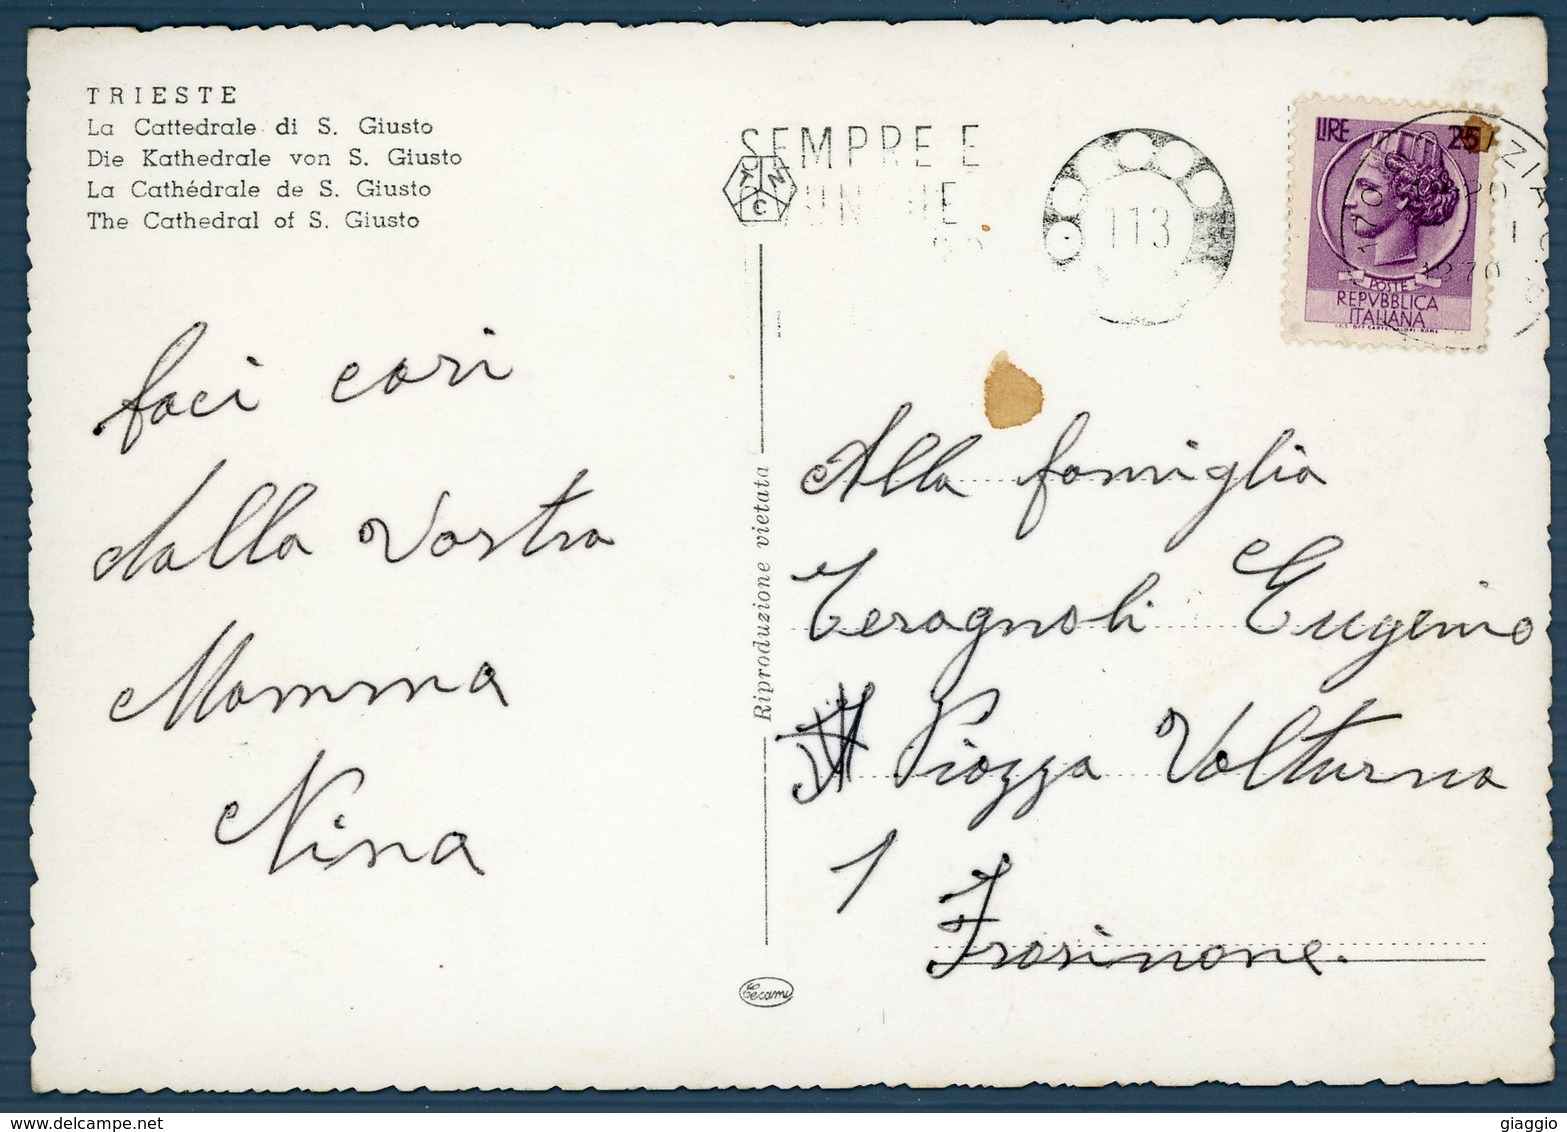 TRIESTE
La Cattedrale di S. Giusto
Die Kathedrale von S. Giusto
La Cathédrale de S. Giusto
The Cathedral of S. Giusto
SEMPRE E
113
LIRE 25
POSTE
REPVBBLICA
ITALIANA
baci cari
dalla Vostra
Mamma
Nina
Riproduzione vietata
Alla famiglia
Teragnoli Eugenio
Piazza Volturna
1
Frosinone.
Cecami
giaggio